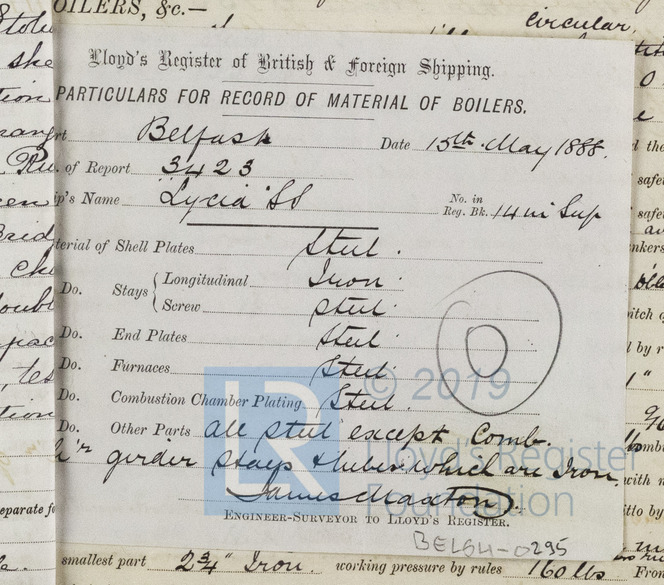 OILERS, &c.—
circular,
Lloyd's Register of British & Foreign Shipping.
PARTICULARS FOR RECORD OF MATERIAL OF BOILERS.
rt Belfast Date 15th May 1888.
of Report 3423
ip's Name Lycia SS No. in Reg. Bk. 14 in Sup
terial of Shell Plates Steel.
Do. Stays { Longitudinal Iron
Screw Steel
Do. End Plates Steel
Do. Furnaces Steel
Do. Combustion Chamber Plating Steel.
Do. Other Parts all steel except Comb.
h'r girder stays & tubes which are Iron.
James Maxton
ENGINEER-SURVEYOR TO LLOYD'S REGISTER.
BEL64-0295
smallest part 2¾" Iron. working pressure by rules 160 lbs From
LR © 2019
Lloyd's Register
Foundation